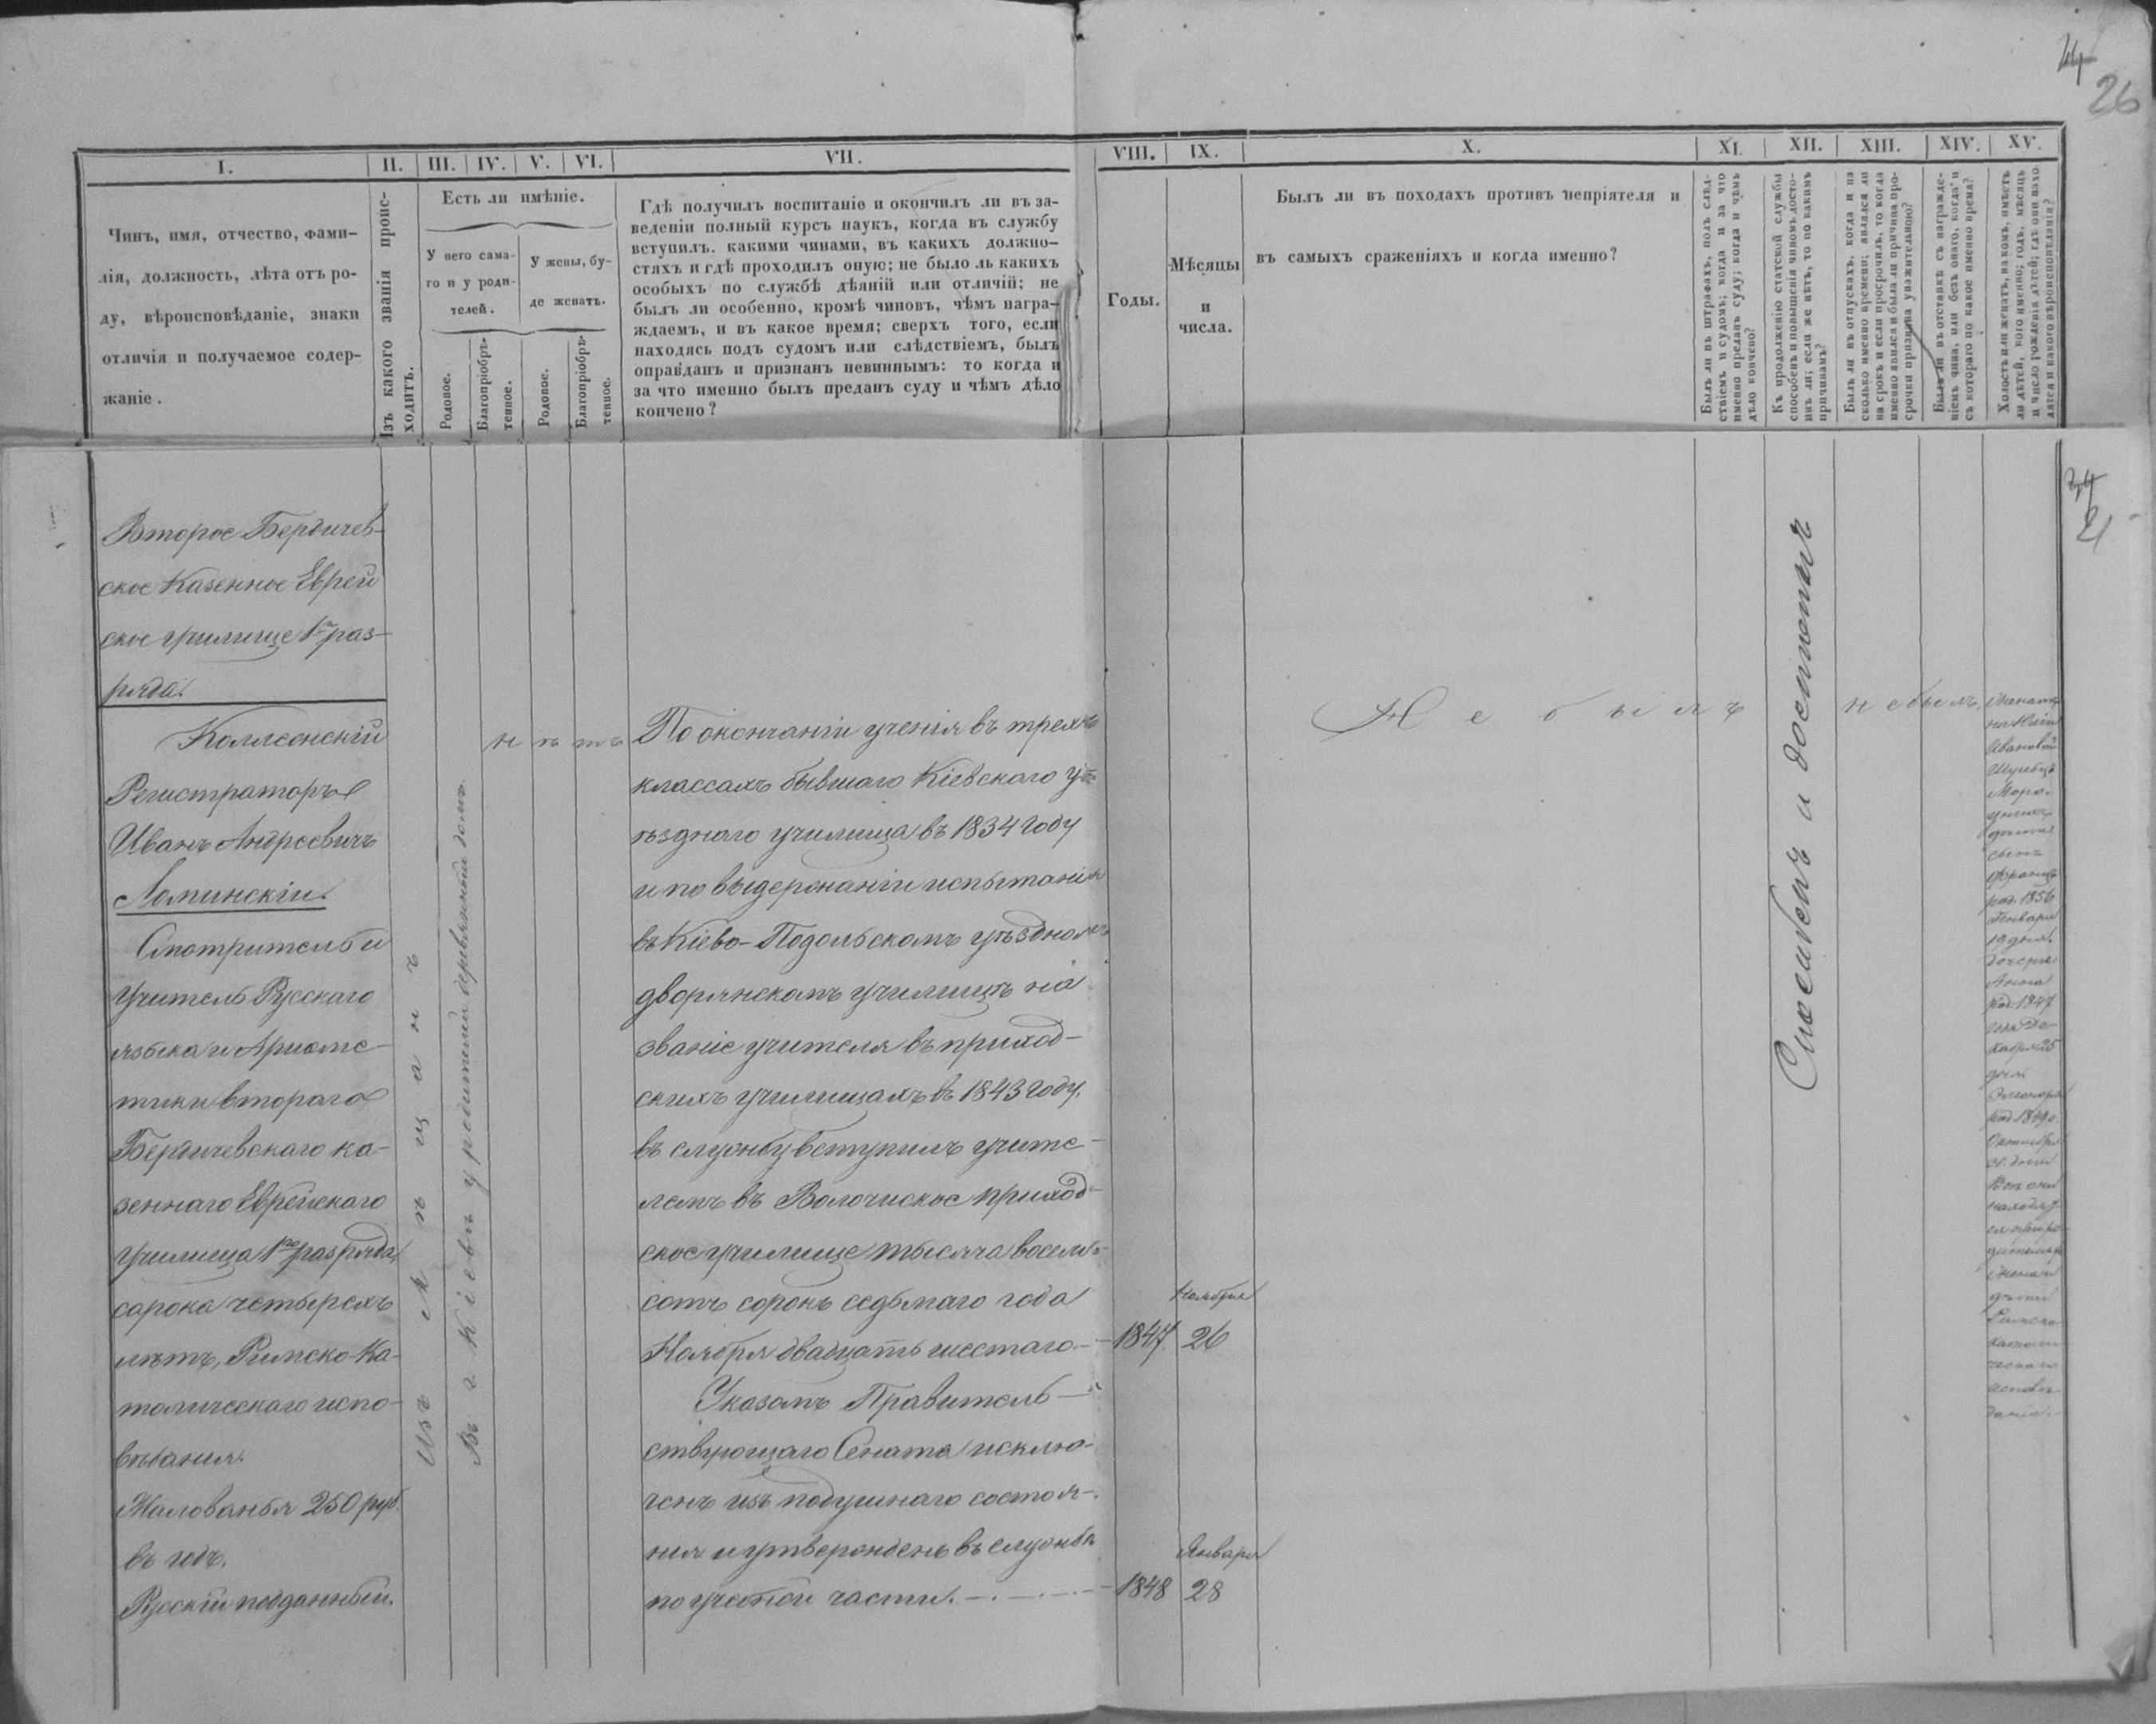 44
26
I.
II.
III.
IV.
V.
VI.
VII.
VIII.
IX.
X.
XI.
XII.
XIII.
XIV.
XV.
Чинъ, имя, отчество, фами-
лія, должность, лѣта отъ ро-
ду, вѣроисповѣданіе, знаки
отличія и получаемое содер-
жаніе.
Изъ какого званія проис-
ходитъ.
Есть ли имѣніе.
У него сама-
го и у роди-
телей.
У жены, бу-
де женатъ.
Родовое.
Благопріобрѣ-
тенное.
Родовое.
Благопріобрѣ-
тенное.
Гдѣ получилъ воспитаніе и окончилъ ли въ за-
веденіи полный курсъ наукъ, когда въ службу
вступилъ. какими чинами, въ какихъ должно-
стяхъ и гдѣ проходилъ оную; не было ль какихъ
особыхъ по службѣ дѣяній или отличій; не
былъ ли особенно, кромѣ чиновъ, чѣмъ награ-
ждаемъ, и въ какое время; сверхъ того, если
находясь подъ судомъ или слѣдствіемъ, былъ
оправданъ и признанъ невиннымъ: то когда и
за что именно былъ преданъ суду и чѣмъ дѣло
кончено?
Годы.
Мѣсяцы
и
числа.
Былъ ли въ походахъ противъ непріятеля и
въ самыхъ сраженіяхъ и когда именно?
Былъ ли въ штрафахъ, подъ слѣд-
ствіемъ и судомъ; когда и за что
именно преданъ суду; когда и чѣмъ
дѣло кончено?
Къ продолженію статской службы
способенъ и повышенія чиномъ досто-
инъ ли; если же нѣтъ, то по какимъ
причинамъ?
Былъ ли въ отпускахъ, когда и на
сколько именно времени; являлся ли
на срокъ и если просрочилъ, то когда
именно явился и была ли причина про-
срочки признана уважительною?
Былъ ли въ отставкѣ съ награжде-
ніемъ чина, или безъ онаго, когда и
съ котораго по какое именно время?
Холостъ или женатъ, на комъ, имѣетъ
ли дѣтей, кого именно; годъ, мѣсяцъ
и число рожденія дѣтей; гдѣ они нахо-
дятся и какого вѣроисповѣданія?
Второе Бердичев-
ское Казенное Еврей
ское училище 1го раз-
ряда.
Коллежскій
Регистраторъ
Иванъ Андреевичъ
Ломинскій.
Смотритель и
Учитель Русскаго
языка и Ариѳме-
тики втораго
Бердичевскаго ка-
зеннаго Еврейскаго
училища 1го разряда,
сорока четырехъ
лѣтъ, Римско-Ка-
толическаго испо-
вѣданія.
Жалованья 250 руб.
въ годъ.
Русскій подданный.
Изъ мѣщанъ
Въ г. Кіевѣ у родителей деревянный домъ.
нѣтъ
По окончаніи ученія въ трехъ
классахъ бывшаго Кіевскаго у-
ѣзднаго училища въ 1834 году
и по выдержаніи испытанія
въ Кіево-Подольскомъ уѣздномъ
дворянскомъ училищѣ на
званіе учителя въ приход-
скихъ училищахъ въ 1843 году.
въ службу вступилъ учите-
лемъ въ Волочиское приход-
ское училище тысяча восемь-
сотъ сорокъ седьмаго года
Ноября двадцать шестаго.
1847
Ноября
26
Указомъ Правитель-
ствующаго Сената исклю-
ченъ изъ подушнаго состоя-
нія и утвержденъ въ службѣ
по учебной части.
1848
Января
28
Не былъ
Способенъ и достоинъ
не былъ
Женатъ
на
Ивановой
сынъ
Францъ
род. 1856
Января
19 дня,
дочери:
Анна
род. 1847
года Де-
кабря 25
дня
Элеонора
род. 1849 г.
Октября
Всѣ они
находят-
ся при ро-
дителяхъ
Жена и
дѣти
Римско
католи
ческаго
исповѣ
данія.
34
21